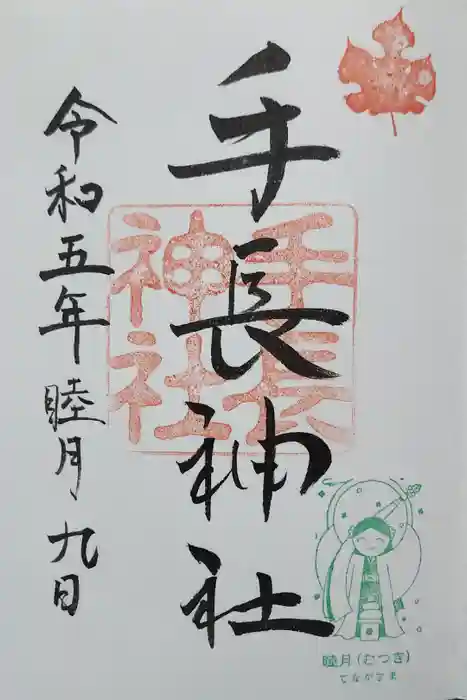 手長神社
手長神社
令和五年睦月九日
睦月(むつき)
てながさま